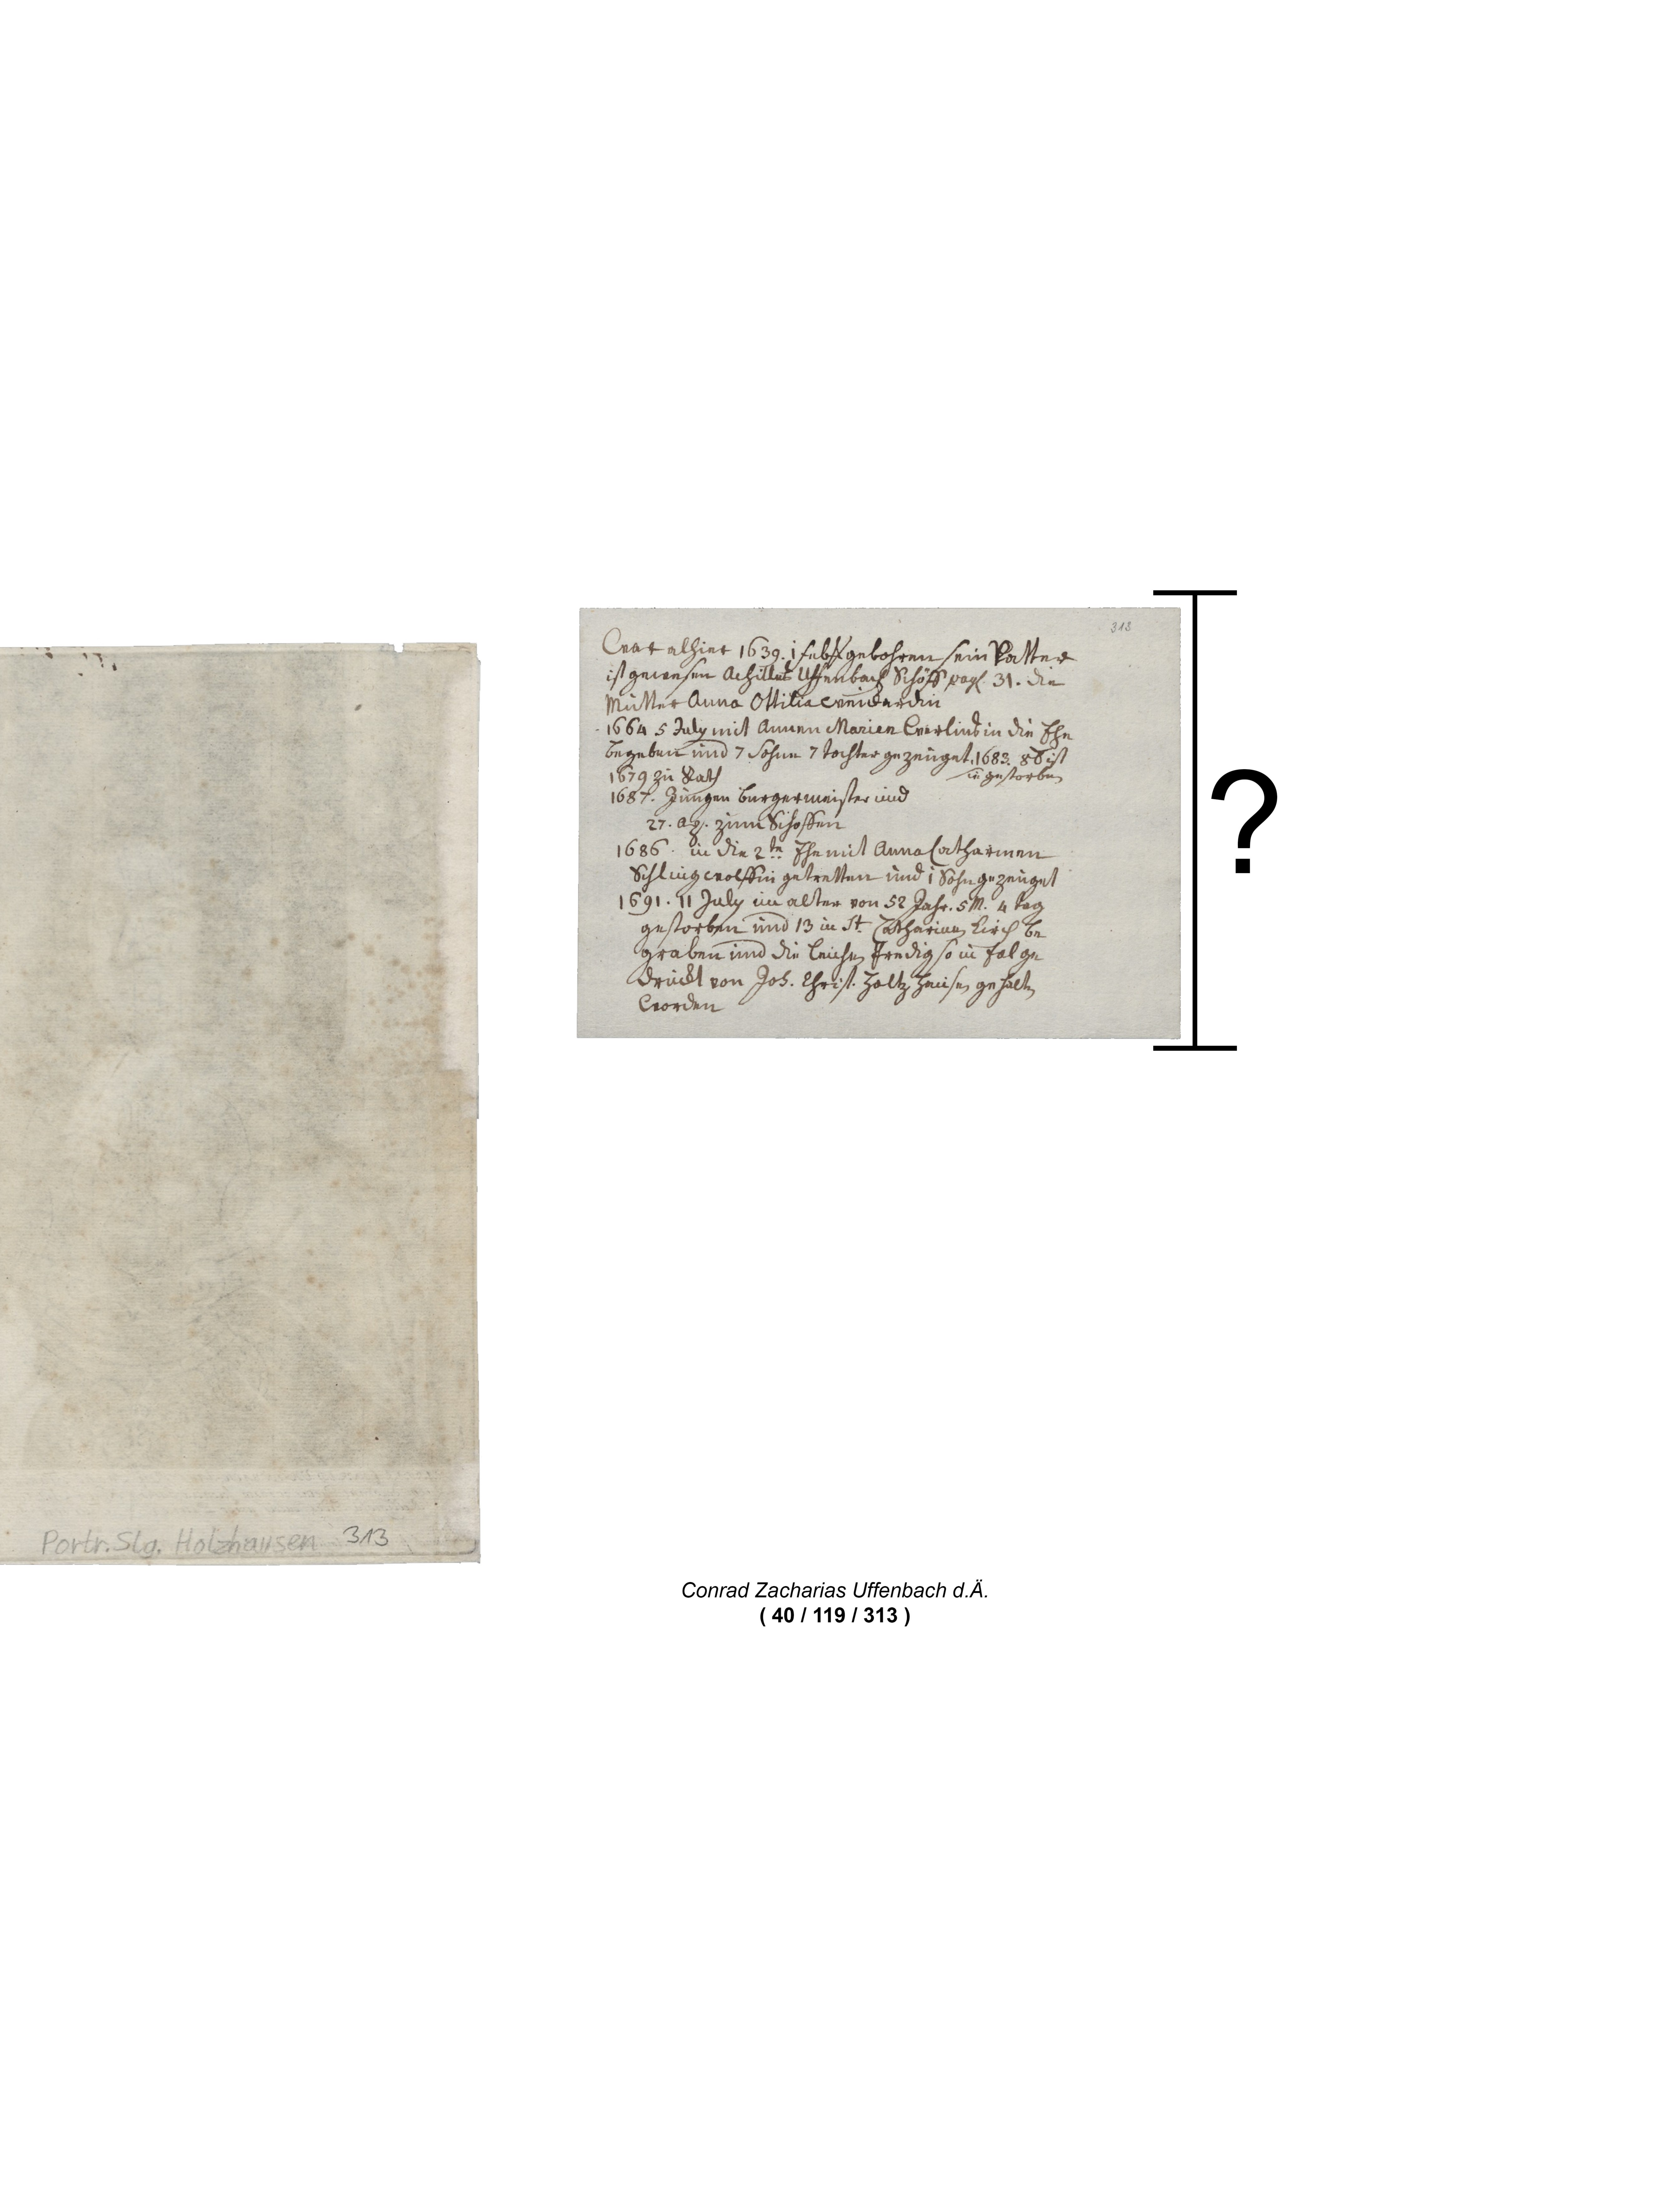 313
War alhier 1639. 1 feb. gebohren sein Vatter
ist gewesen Achilles Uffenbach Schöff pag. 31. die
Mutter Anna Ottilia
1664 5 July mit Annen Marien in die Ehe
begeben und 7 Sohne 7 tochter gezeuget. 1683. ist
gestorben
1679 zu Rath
1687. Jungen burgermeister und
27. ag. zum Schoffen
1686. in die 2te Ehe mit Anna Catharinen
Schlingwolffin getretten und 1 Sohn gezeuget
1691. 11 July im alter von 52 Jahr. 5 M. 4 tag
gestorben und 13 in St. Catharinen Kirch be
graben und die leichen Predig so in fol ge
druckt von Joh. Christ. Holtzhausen gehalten
worden
?
Portr. Slg. Holzhausen 313
Conrad Zacharias Uffenbach d.Ä.
( 40 / 119 / 313 )